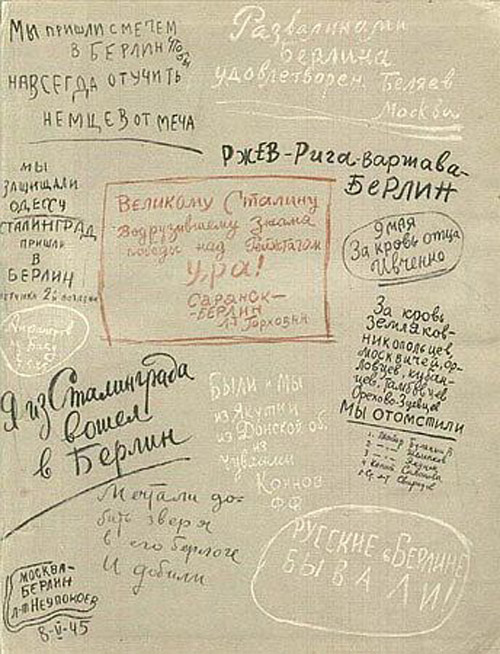 МЫ ПРИШЛИ С МЕЧЕМ
В БЕРЛИН ЧТОБЫ
НАВСЕГДА ОТУЧИТЬ
НЕМЦЕВ ОТ МЕЧА
Развалинами
Берлина
удовлетворен Беляев
Москвы
РЖЕВ-РИГА-ВАРЖАВА-
БЕРЛИН
МЫ
ЗАЩИЩАЛИ
ОДЕССУ
СТАЛИНГРАД
ПРИШЛИ
В
БЕРЛИН
ВЕЛИКОМУ СТАЛИНУ
ВОДРУЗИВШЕМУ ЗНАМЯ
ПОБЕДЫ НАД РЕЙХСТАГОМ
УРА!
САРАНСК-
-БЕРЛИН
Л-Т ГОРХОВИН
9 МАЯ
За кровь отца
Ивченко
За кровь
земляков-
никопольцев,
москвичей, ор-
ловцев, кубан-
цев, тамбовцев
Орехово-Зуевцев
МЫ ОТОМСТИЛИ
из Баку
Я из Сталинграда
вошел
в Берлин
БЫЛИ И МЫ
из Якутии
из Донской об.
из
Чувашии
Коннов
ФФ
Мечтали до-
бить зверя
в его берлоге
И добили
РУССКИЕ в БЕРЛИНЕ
БЫВАЛИ!
МОСКВА-
БЕРЛИН
Л-Т НЕУПОКОЕВ
8-V-45